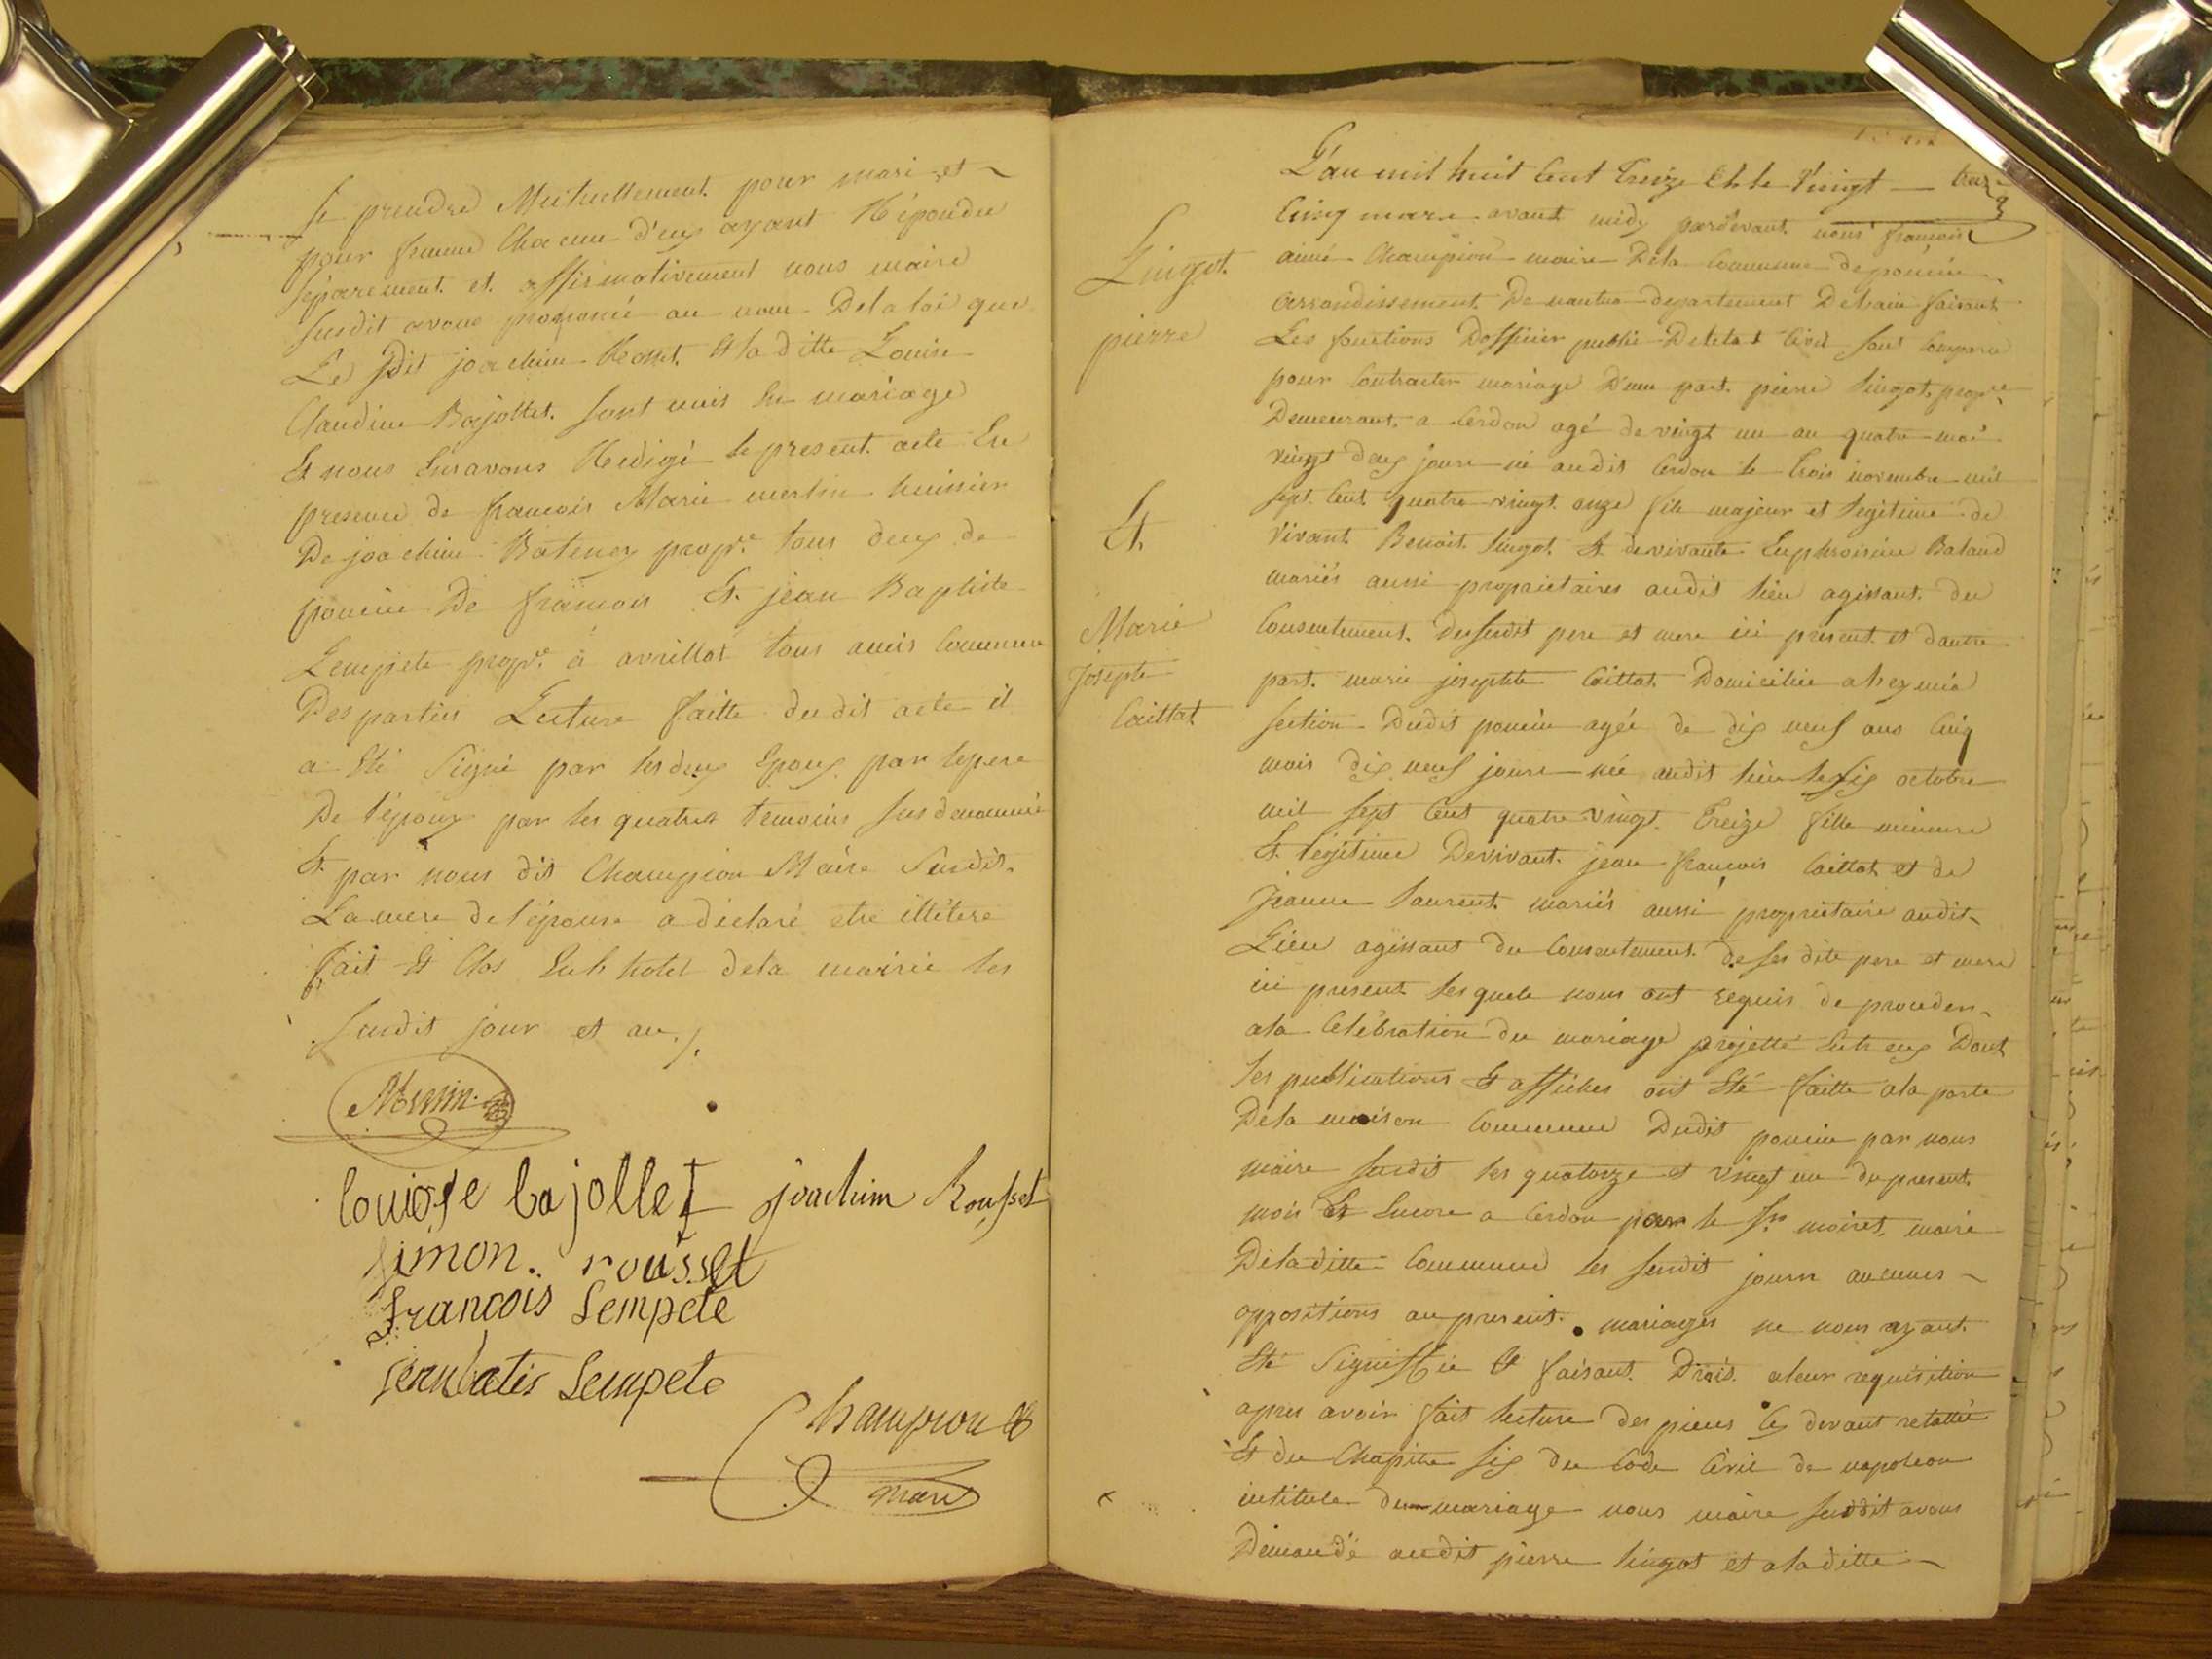 Se prendre Mutuellement pour mari et
pour femme Chacun d'eux ayant Répondu
séparement et affirmativement nous maire
susdit avons prononcé au nom De la loi que
Le dit joachim Rosset Et la ditte Louise
Claudine Bajollet sont unis En mariage
Et nous En avons Redigé le present acte En
presence de francois Marie merlin huissier
De joachim prop.re tous deux de
poncin De francois Et jean Baptiste
Lempete prop.re à avrillat tous amis Commun
Des parties Lecture faitte du dit acte il
a Eté Signé par les deux Epoux par le pere
De l'époux par les quatres temoins sus denommé
Et par nous dit Champion Maire Susdit.
La mere de l'épouse a déclaré etre illétere
fait Et Clos En l'hotel de la mairie les
susdit jour et an ./.
louise bajollet joachim Rousset
simon. rousset
francois Lempete
jean batis Lempete
Champion
maire
L'an mil huit Cent treize Et le Vingt — treize
Cinq mars avant midy pardevant nous francois
aimé Champion maire De la Commune de poncin
arrondissement De nantua departement De l'ain faisant
Les fonctions D'officier public De l'etat Civil sont Comparu
pour Contracter mariage D'une part pierre Lingot prop.re
Demeurant a Cerdon agé de vingt un an quatre moi
vingt deux jours né audit Cerdon le trois novembre mil
sept Cent quatre vingt onze fils majeur et legitime de
Vivant Benoit Lingot Et de vivante Euphroisine Baland
mariés aussi proprietaires audit lieu agissant du
Consentement du susdit pere et mere ici present et d'autre
part marie josephte Caillat Domiciliée a
section Dudit poncin agée de dix neuf ans Cinq
mois dix neuf jours née audit lieu le six octobre
mil sept Cent quatre vingt treize fille mineure
Et legitime De vivant jean francois Caillat et de
Jeanne Laurent mariés aussi proprietaire audit
Lieu agissant du Consentement de ses dits pere et mere
ici present lesquels nous ont requis de proceder
a la Célébration du mariage projetté Entr'eux Dont
les publications Et affiches ont Eté faitte a la porte
De la maison Commune Dudit poncin par nous
maire susdit les quatorze et vingt un du present
mois Et Encore a Cerdon par le Sr. moiret maire
De la ditte Commune les susdit jours aucunes
oppositions au present mariages ne nous ayant
Eté Signiffié Et faisant Droit a leur requisition
apres avoir fait lecture des pieces Cy devant relatté
Et du Chapitre six du Code Civil de napoleon
intitulé du mariage nous maire susdit avons
Demandé audit pierre Lingot et a la ditte
Lingot
pierre
Et
Marie
Josephte
Caillat